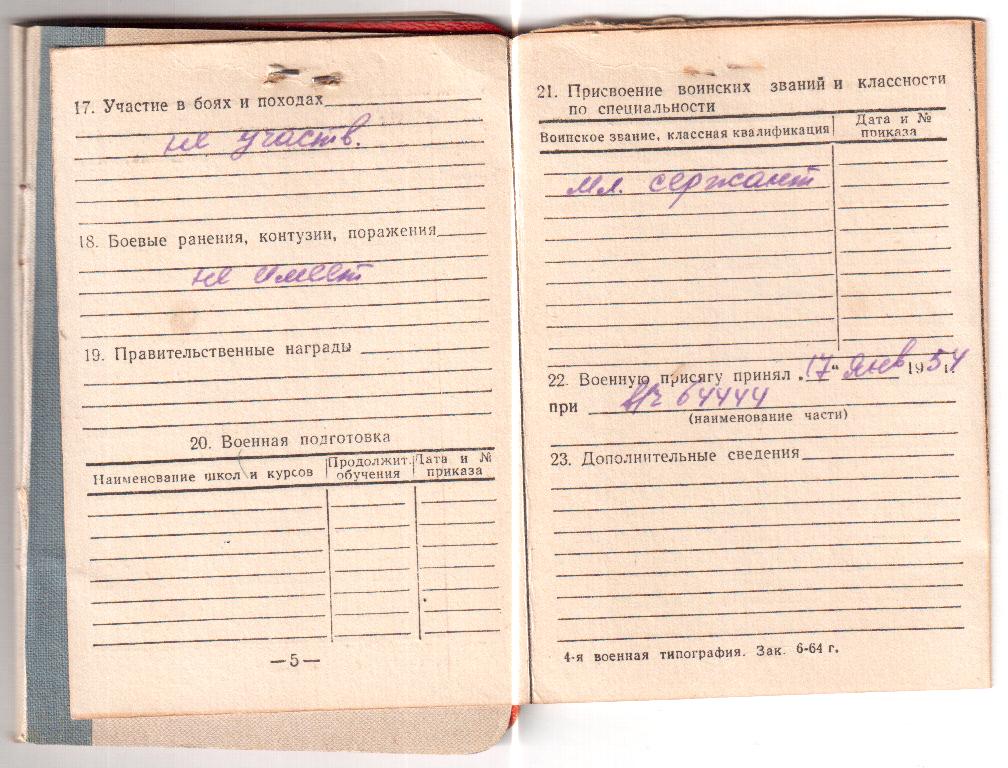 17. Участие в боях и походах
не участв.
18. Боевые ранения, контузии, поражения
не имеет
19. Правительственные награды
20. Военная подготовка
Наименование школ и курсов
Продолжит. обучения
Дата и № приказа
—5—
21. Присвоение воинских званий и классности
по специальности
Воинское звание, классная квалификация
Дата и № приказа
мл. сержант
22. Военную присягу принял „17“ янв 1954 г.
при в/ч 64444
(наименование части)
23. Дополнительные сведения
4-я военная типография. Зак. 6-64 г.